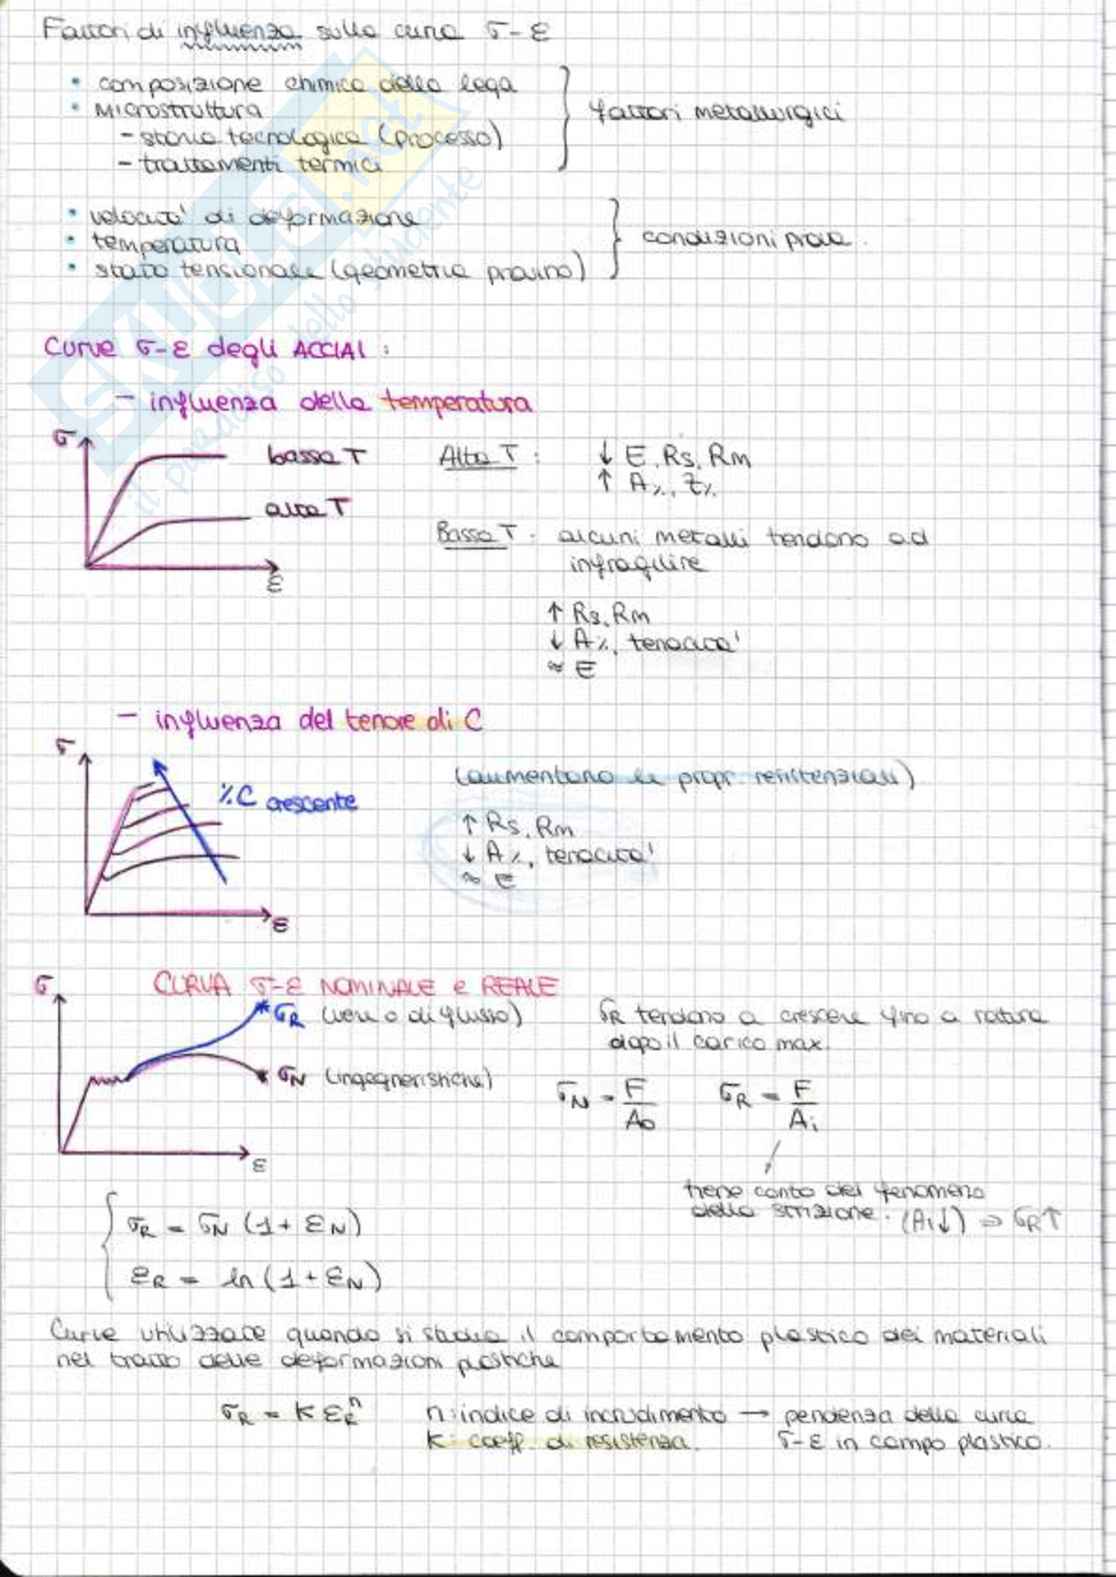 Fattori di influenza sulla curva σ-ε
• composizione chimica della lega
• microstruttura
- storia tecnologica (processo)
- trattamenti termici
} fattori metallurgici
• velocita' di deformazione
• temperatura
• stato tensionale (geometria provino)
} condizioni prova.
Curve σ-ε degli ACCIAI:
- influenza della temperatura
σ
bassa T
alta T
ε
Alta T: ↓ E, Rs, Rm
↑ A%, Z%
Bassa T: alcuni metalli tendono ad
infragilire
↑ Rs, Rm
↓ A%, tenacita'
≈ E
- influenza del tenore di C
σ
%C crescente
ε
(aumentano le propr. resistenziali)
↑ Rs, Rm
↓ A%, tenacita'
≈ E
CURVA σ-ε NOMINALE e REALE
σ
σR (vere o di flusso)
σN (ingegneristiche)
ε
σR tendono a crescere fino a rottura
dopo il carico max.
σN = F/A0 σR = F/Ai
tiene conto del fenomeno
della strizione. (Ai↓) ⇒ σR↑
{ σR = σN (1 + εN)
εR = ln (1 + εN)
Curve utilizzate quando si studia il comportamento plastico dei materiali
nel tratto delle deformazioni plastiche
σR = K εR^n n: indice di incrudimento → pendenza della curva
K: coeff. di resistenza. σ-ε in campo plastico.
SKUOLA.net
il paradiso dello studente